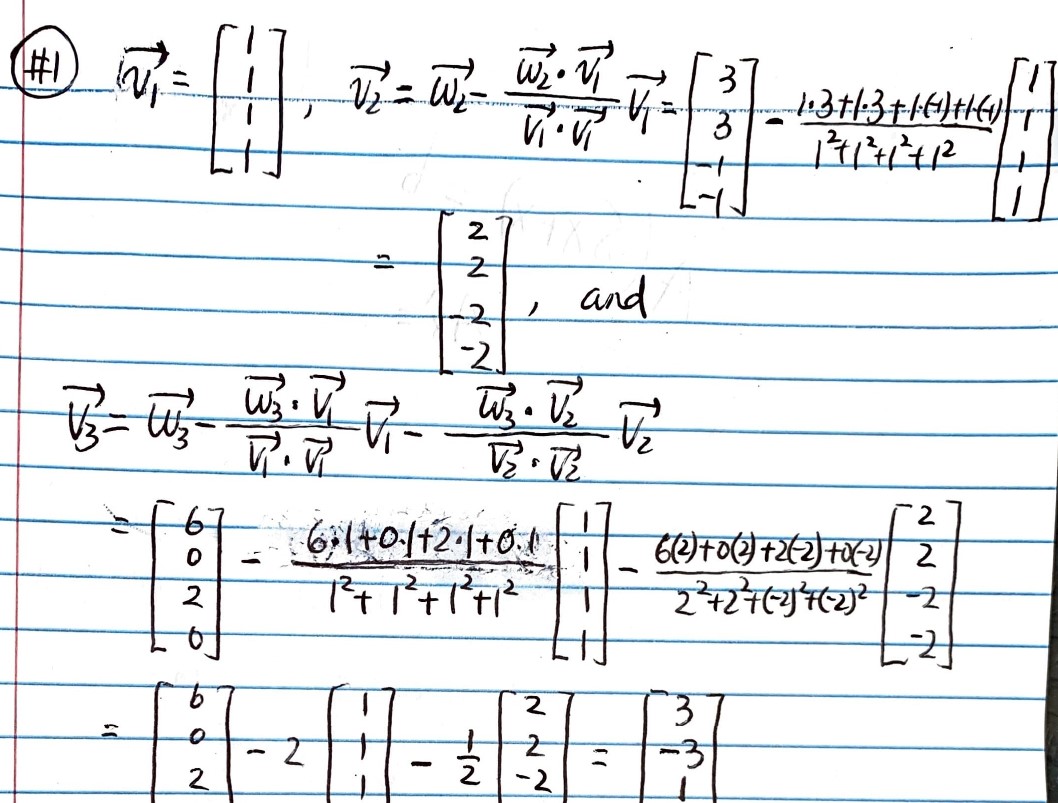 #1 $\vec{v_1} = \begin{bmatrix} 1 \\ 1 \\ 1 \\ 1 \end{bmatrix}$, $\vec{v_2} = \vec{w_2} - \frac{\vec{w_2} \cdot \vec{v_1}}{\vec{v_1} \cdot \vec{v_1}} \vec{v_1} = \begin{bmatrix} 3 \\ 3 \\ -1 \\ -1 \end{bmatrix} - \frac{1 \cdot 3 + 1 \cdot 3 + 1 \cdot (-1) + 1 \cdot (-1)}{1^2 + 1^2 + 1^2 + 1^2} \begin{bmatrix} 1 \\ 1 \\ 1 \\ 1 \end{bmatrix}$
$= \begin{bmatrix} 2 \\ 2 \\ -2 \\ -2 \end{bmatrix}$, and
$\vec{v_3} = \vec{w_3} - \frac{\vec{w_3} \cdot \vec{v_1}}{\vec{v_1} \cdot \vec{v_1}} \vec{v_1} - \frac{\vec{w_3} \cdot \vec{v_2}}{\vec{v_2} \cdot \vec{v_2}} \vec{v_2}$
$= \begin{bmatrix} 6 \\ 0 \\ 2 \\ 0 \end{bmatrix} - \frac{6 \cdot 1 + 0 \cdot 1 + 2 \cdot 1 + 0 \cdot 1}{1^2 + 1^2 + 1^2 + 1^2} \begin{bmatrix} 1 \\ 1 \\ 1 \\ 1 \end{bmatrix} - \frac{6(2) + 0(2) + 2(-2) + 0(-2)}{2^2 + 2^2 + (-2)^2 + (-2)^2} \begin{bmatrix} 2 \\ 2 \\ -2 \\ -2 \end{bmatrix}$
$= \begin{bmatrix} 6 \\ 0 \\ 2 \end{bmatrix} - 2 \begin{bmatrix} 1 \\ 1 \\ 1 \end{bmatrix} - \frac{1}{2} \begin{bmatrix} 2 \\ 2 \\ -2 \end{bmatrix} = \begin{bmatrix} 3 \\ -3 \\ 1 \end{bmatrix}$